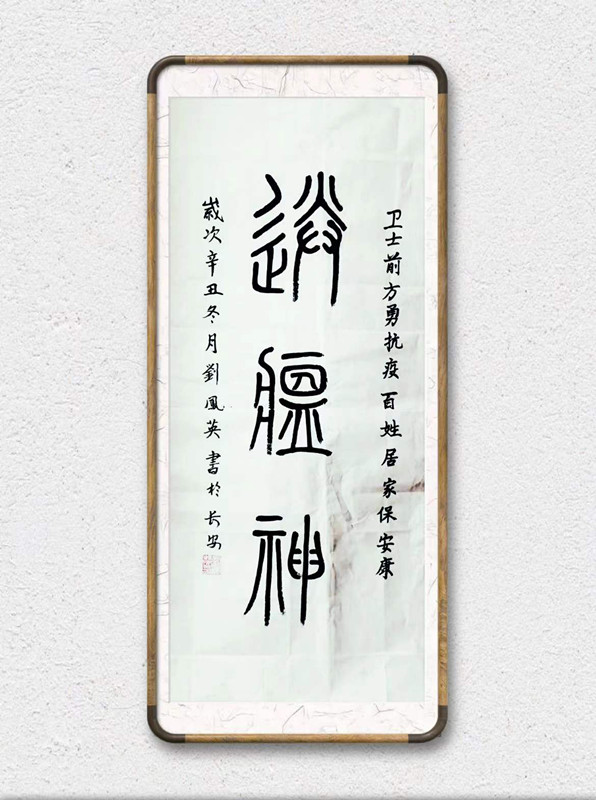 卫士前方勇抗疫百姓居家保安康
送瘟神
歲次辛丑冬月劉鳳英書於长安